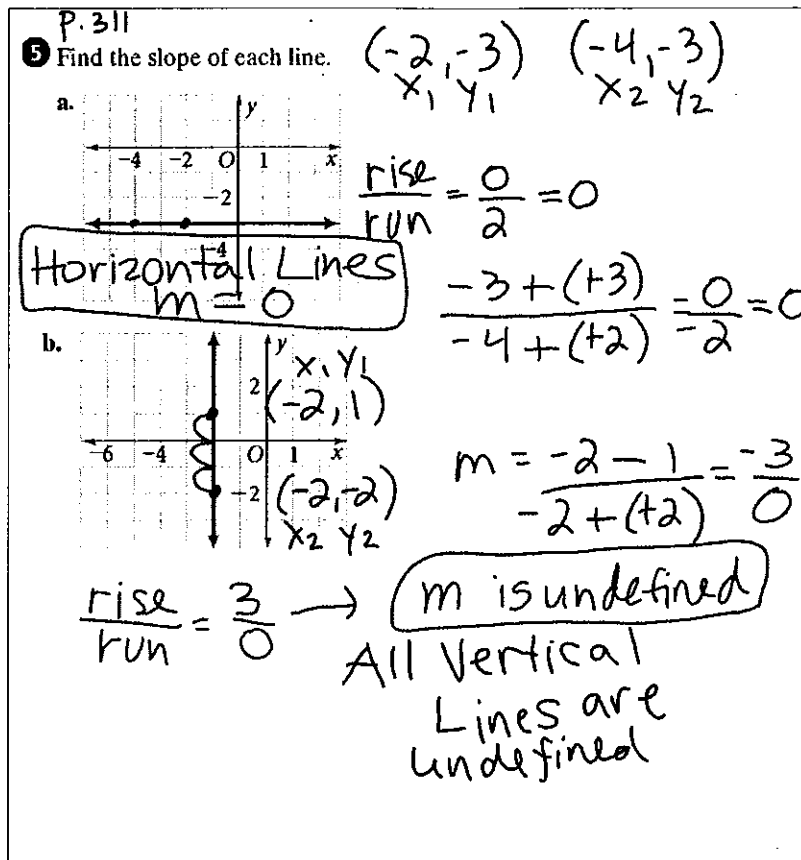 P. 311
5 Find the slope of each line.
(-2, -3) (-4, -3)
x₁ y₁ x₂ y₂
a.
y
-4 -2 O 1 x
-2
-4
rise/run = 0/2 = 0
Horizontal Lines
m = 0
(-3 + (+3))/(-4 + (+2)) = 0/-2 = 0
b.
y
x₁ y₁
2 (-2, 1)
-6 -4 O 1 x
-2 (-2, -2)
x₂ y₂
m = (-2 - 1)/(-2 + (+2)) = -3/0
rise/run = 3/0 → m is undefined
All Vertical
Lines are
undefined